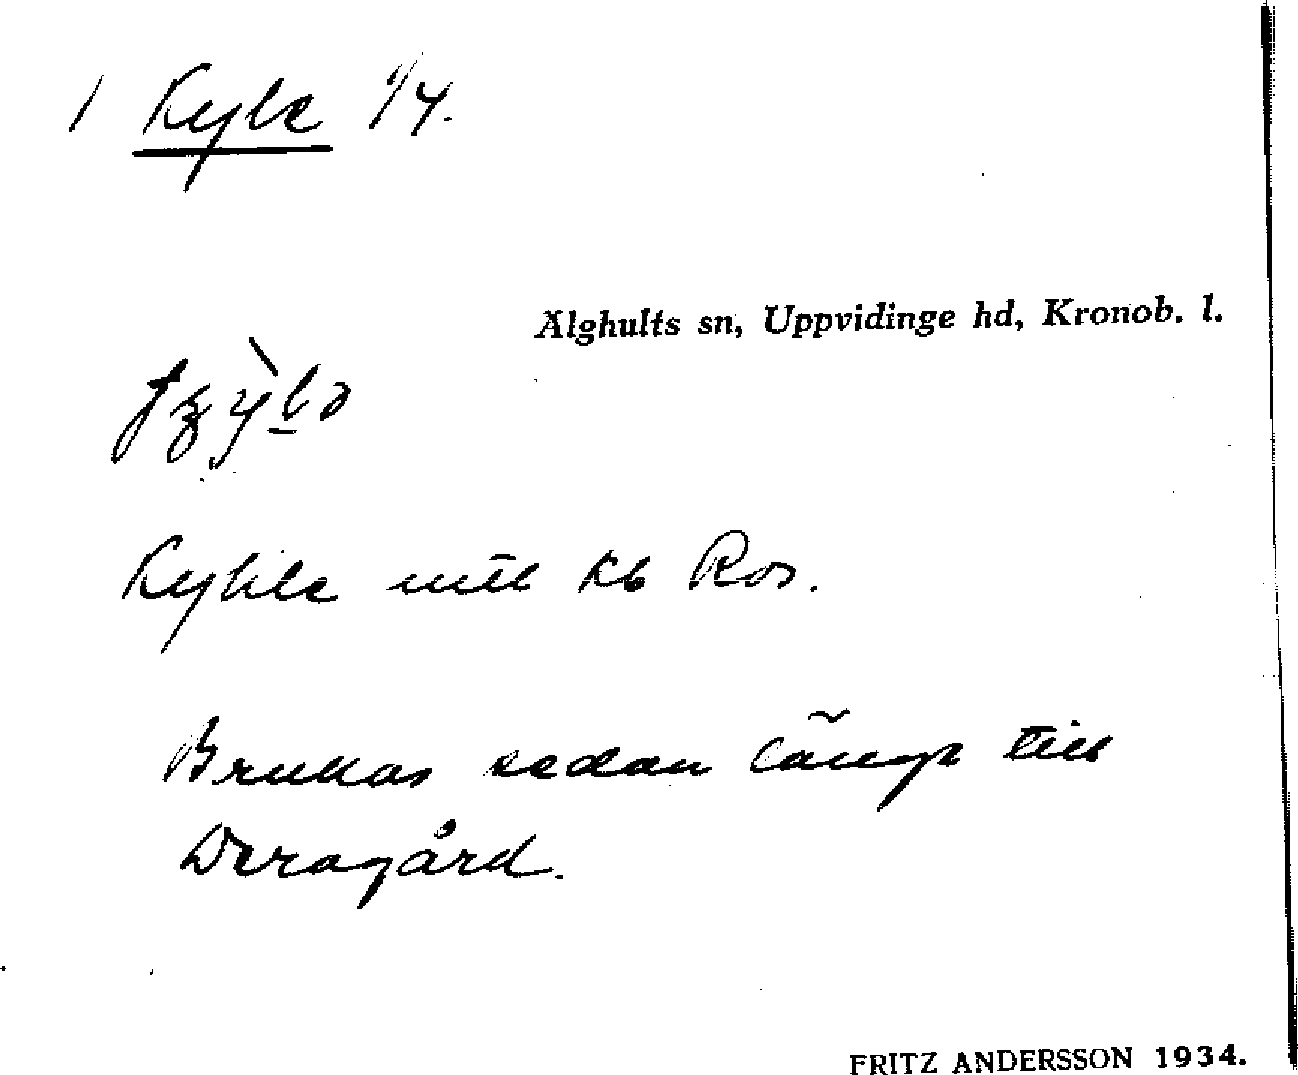 1 Kyle 1/4.
Älghults sn, Uppvidinge hd, Kronob. l.
Kyhle mtl kb Ros.
Brukas sedan länge till
Deragård.
FRITZ ANDERSSON 1934.